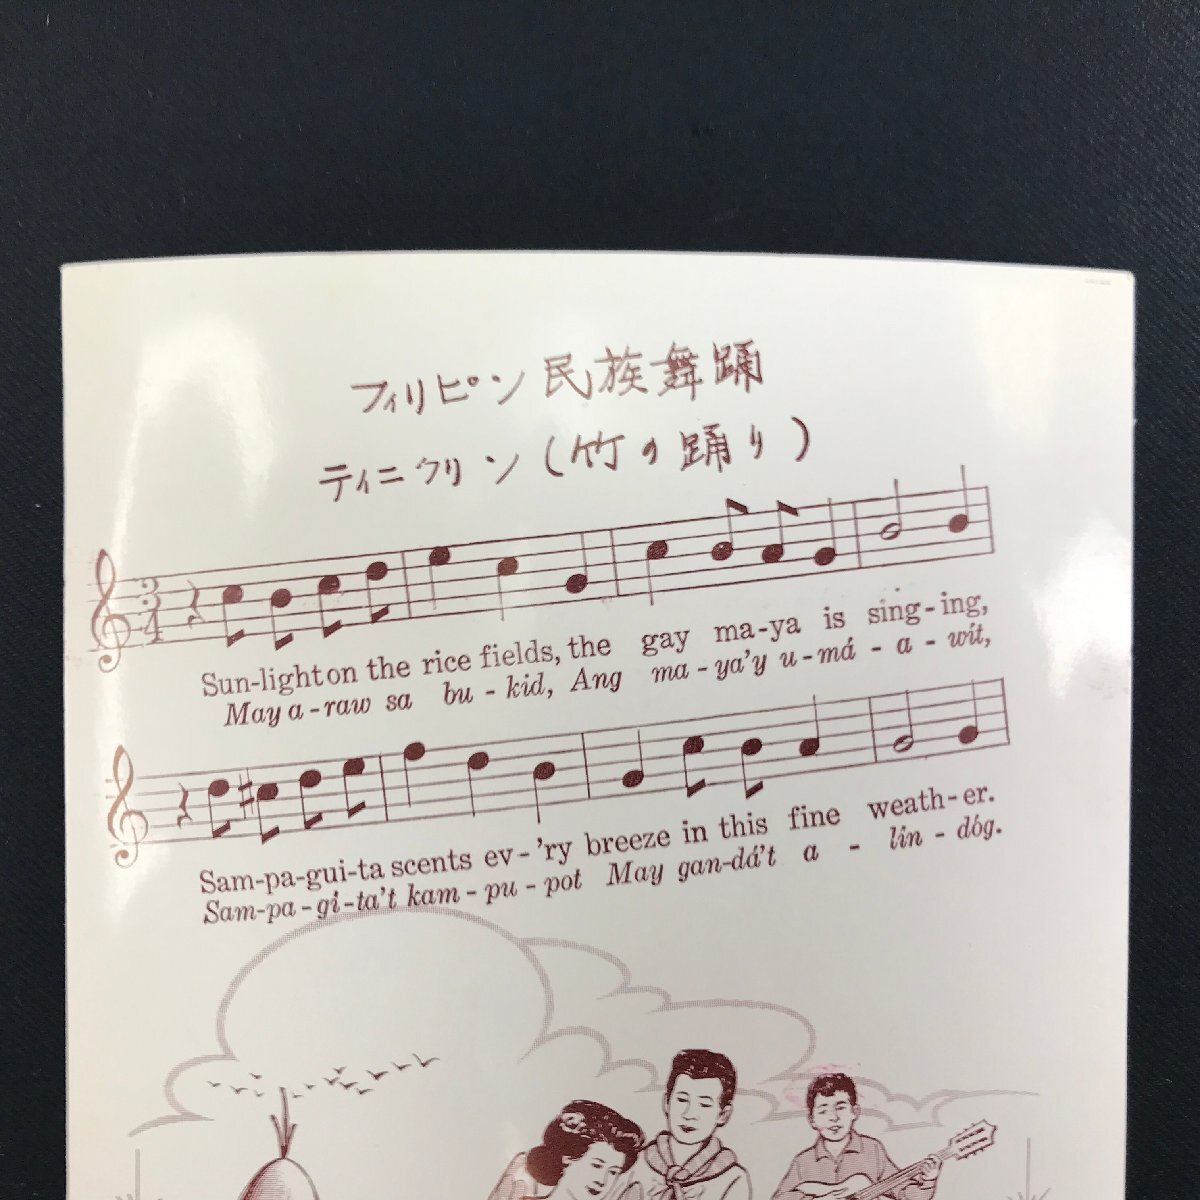 フィリピン民族舞踊
ティニクリン(竹の踊り)
3 3 4
Sun-light on the rice fields, the gay ma-ya is sing-ing,
May a-raw sa bu-kid, Ang ma-ya'y u-má-a-wit,
Sam-pa-gui-ta scents ev-'ry breeze in this fine weath-er.
Sam-pa-gi-ta't kam-pu-pot May gan-dá't a-lin-dóg.